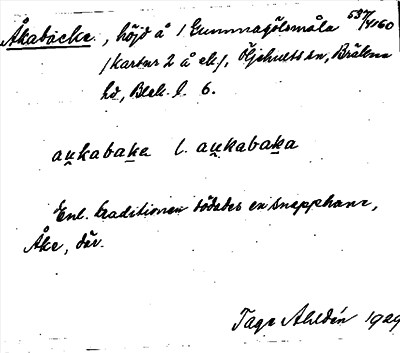 Åkabacke, höjd å 1 Gummagölsmåla 537/4160
/kartur 2 å ek/, Öljehults sn, Bräkne
hd, Blek. l. 6.
au̯kabaka l. au̯kabaka
Enl. traditionen dödades en snapphane,
Åke, där.
Tage Ahldén 1929